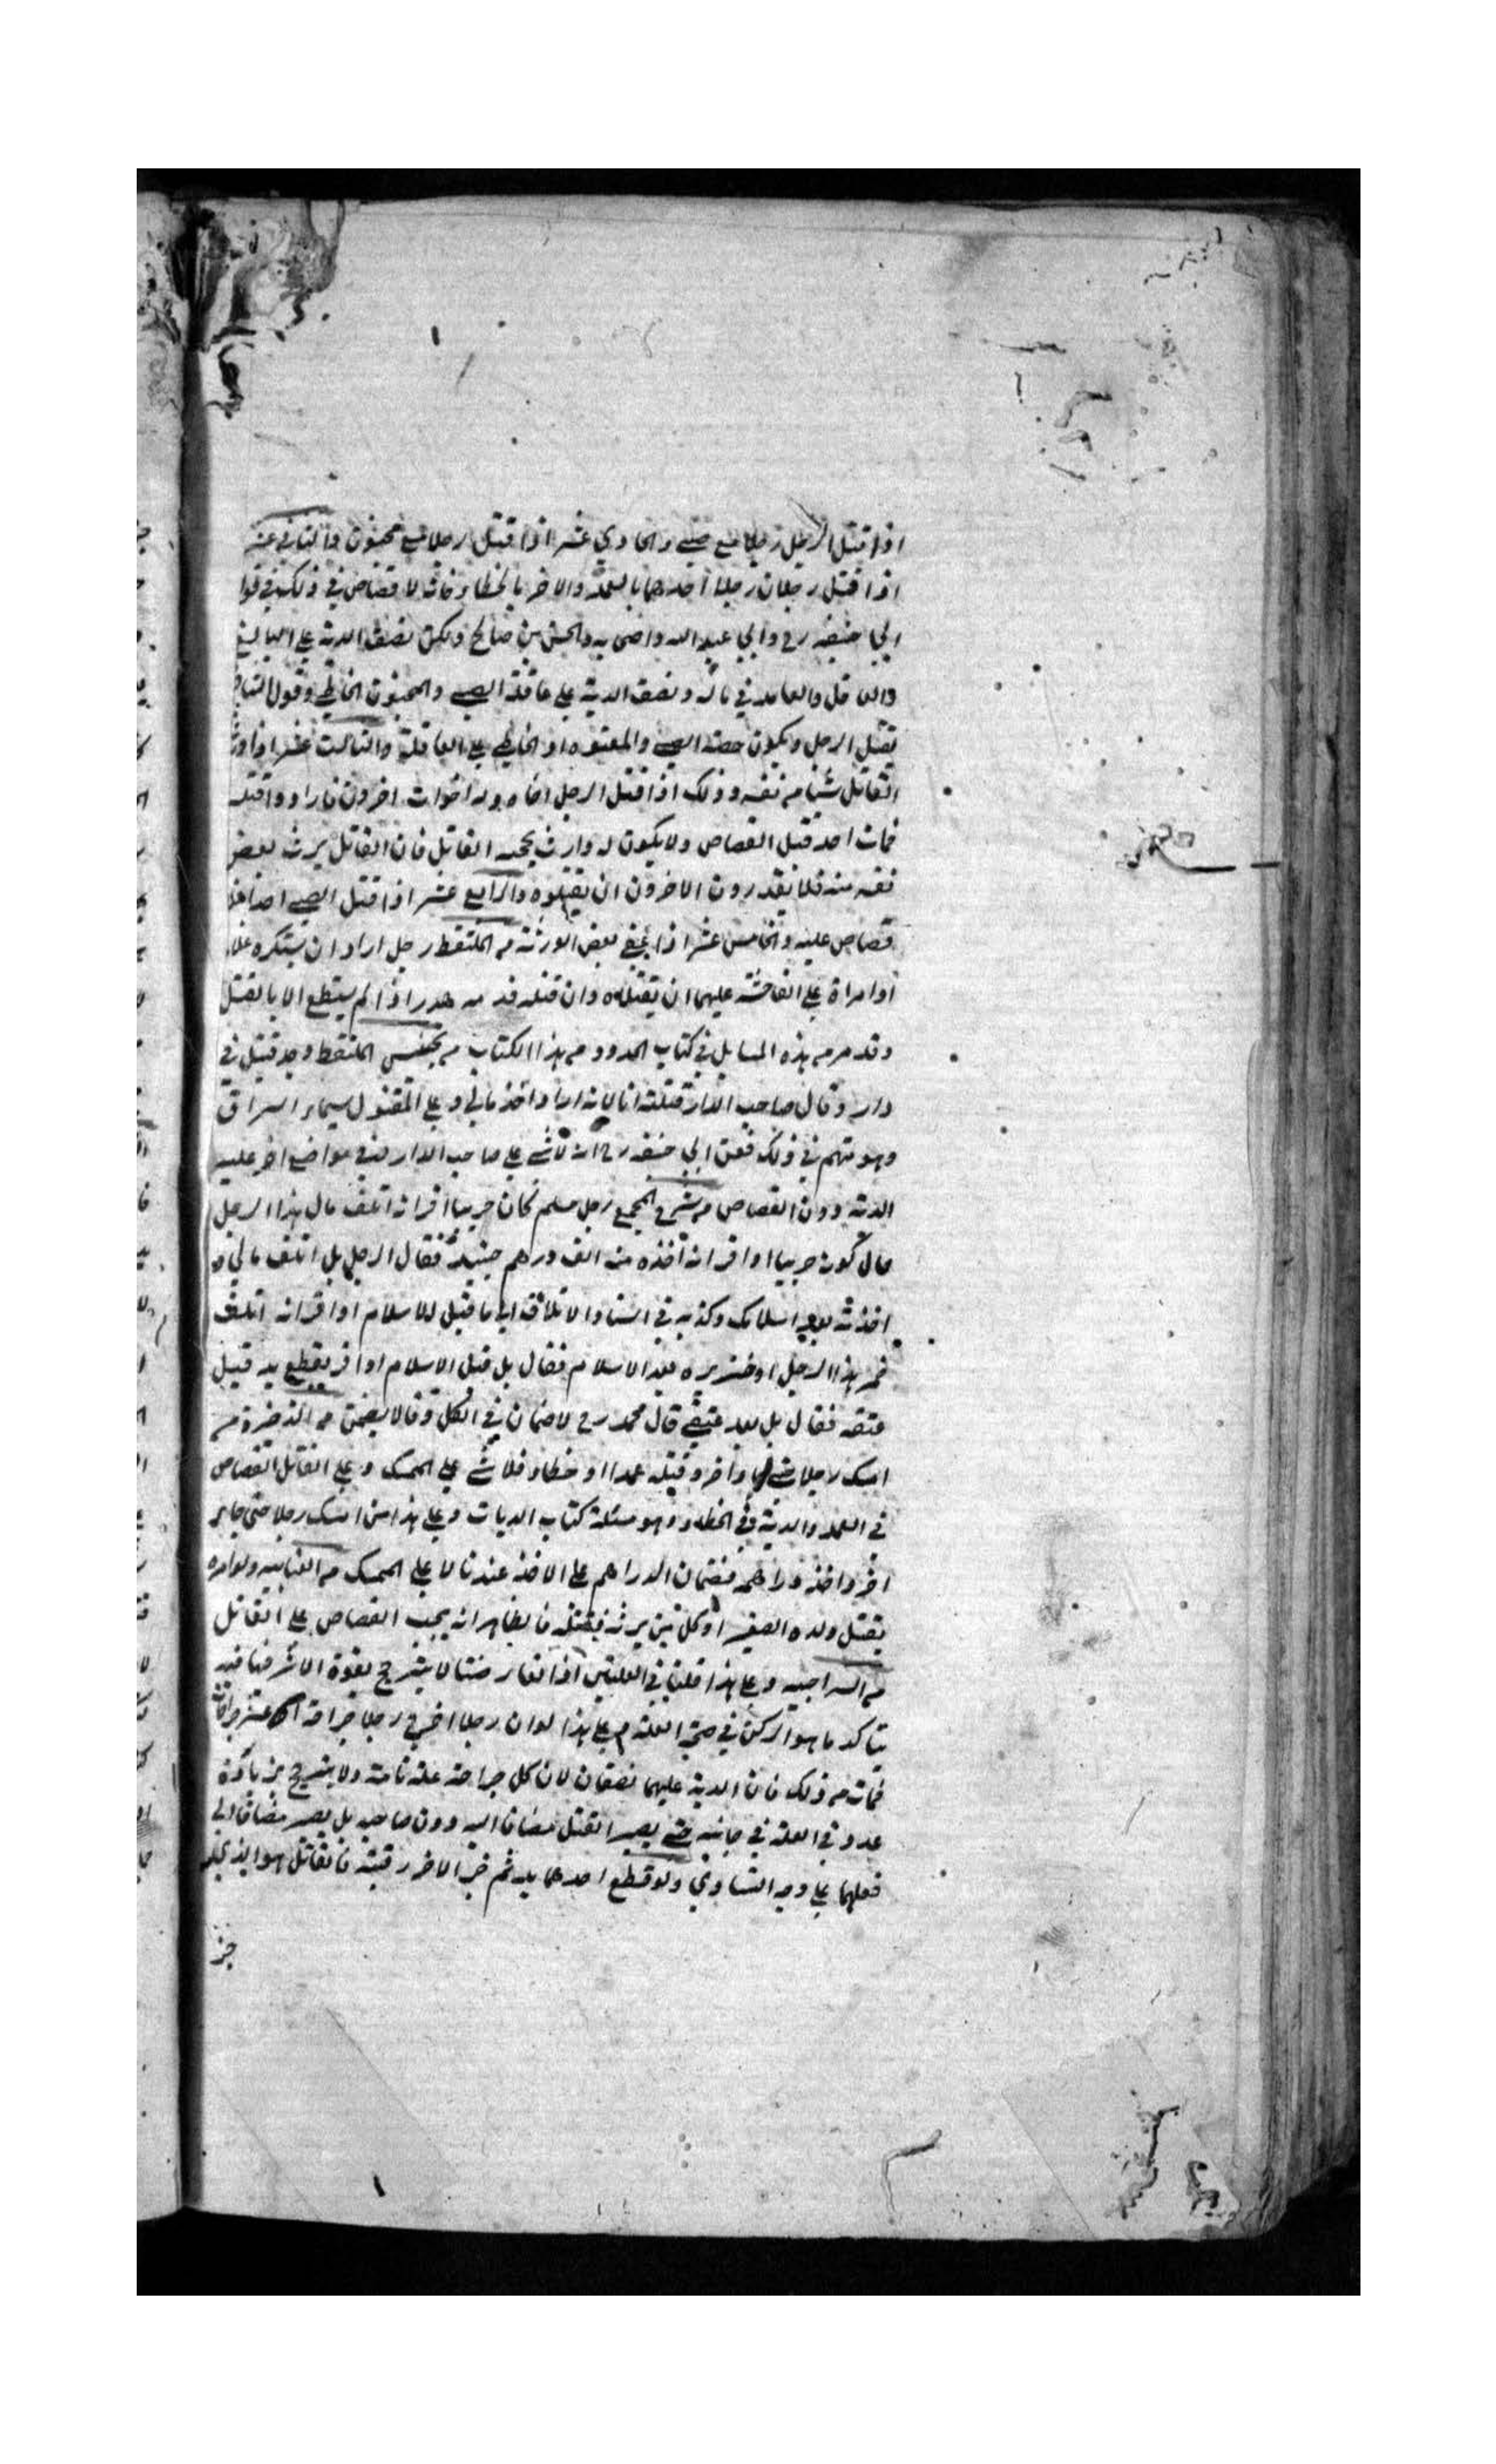 اذا قتل الرجل رجلا مع صبي والحادي عشر اذا قتل رجلا مع مجنون والثاني عشر
اذا قتل رجلان رجلا احدهما بالعمد والاخر بالخطاء فانه لا قصاص في ذلك في قول
ابي حنيفه رح وابي عبد الله واصحابه والحسن بن صالح ولكن نصف الدية على البالغ
والعاقل والعامد في ماله ونصف الدية على عاقلة الصبي والمجنون الخاطي وقول الشافعي
يقتل الرجل ويكون حصة الصبي والمعتوه او الخاطي على العاقلة والثالث عشر اذا ورث
القاتل شيئا من نفسه وذلك اذا قتل الرجل اخاه وله اخوات اخرون فارادوا قتله
فمات احد قبل القصاص ولا يكون له وارث يحجب القاتل فان القاتل يرث بعض
نفسه منه فلا يقدرون الاخرون ان يقتلوه والرابع عشر اذا قتل الصبي احدا فلا
قصاص عليه والخامس عشر اذا عفى بعض الورثة من الملتقط رجل اراد ان يستكره غلاما
او امراة على الفاحشة عليهما ان يقتلاه وان قتله فدمه هدر اذا لم يستطع الا بالقتل
وقد مر من هذه المسايل في كتاب الحدود من هذا الكتاب من تجنيس الملتقط وجد قتيل في
دار وقال صاحب الدار قتلته انا لانه اراد اخذ مالي وعلى المقتول سيماء السراق
وهو متهم في ذلك فعن ابي حنيفه رح انه لا شي على صاحب الدار وفي مواضع اخر عليه
الدية دون القصاص من شرح المجمع رجل مسلم كان حربيا اقر انه اتلف مال هذا الرجل
حال كونه حربيا او اقر انه اخذه منه الف درهم حينيذ فقال الرجل بل اتلف مالي او
اخذته بعد اسلامك وكذبه في اسناد الاتلاف الى ما قبل الاسلام او اقر انه اتلف
خمر هذا الرجل او خنزيره بعد الاسلام فقال بل قبل الاسلام او اقر بقطع يد قبل
عتقه فقال بل بعد عتقي قال محمد رح لا ضمان في الكل وقالا يضمن من الذخيرة من
امسك رجلا حتى جاء اخر وقتله عمدا او خطاء فلا شي على الممسك وعلى القاتل القصاص
في العمد والدية في الخطاء وهو مسئلة كتاب الديات وعلى هذا من امسك رجلا حتى جاء
اخر واخذ دراهمه فضمان الدراهم على الاخذ عندنا لا على الممسك من العتابيه ولو امره
بقتل ولده الصغير او كل من يرثه فقتله فالظاهر انه يجب القصاص على القاتل
من السراجيه وعلى هذا قلنا في العلتين اذا تعارضتا لا يترجح بقوة الاثر فيما فيه
يتاكد ما هو الركن في صحة العلة وعلى هذا لو ان رجلا اجرح رجلا جراحة عشر جراحات
فمات من ذلك فان الدية عليهما نصفان لان كل جراحة علة تامة ولا يترجح بزيادة
عدد في العلة في جانبه حتى يصير القتل مضافا اليه دون صاحبه بل يصير مضافا الى
فعلهما على وجه التساوي ولو قطع احدهما يده ثم جز الاخر رقبته فالقاتل هو الذي
جز